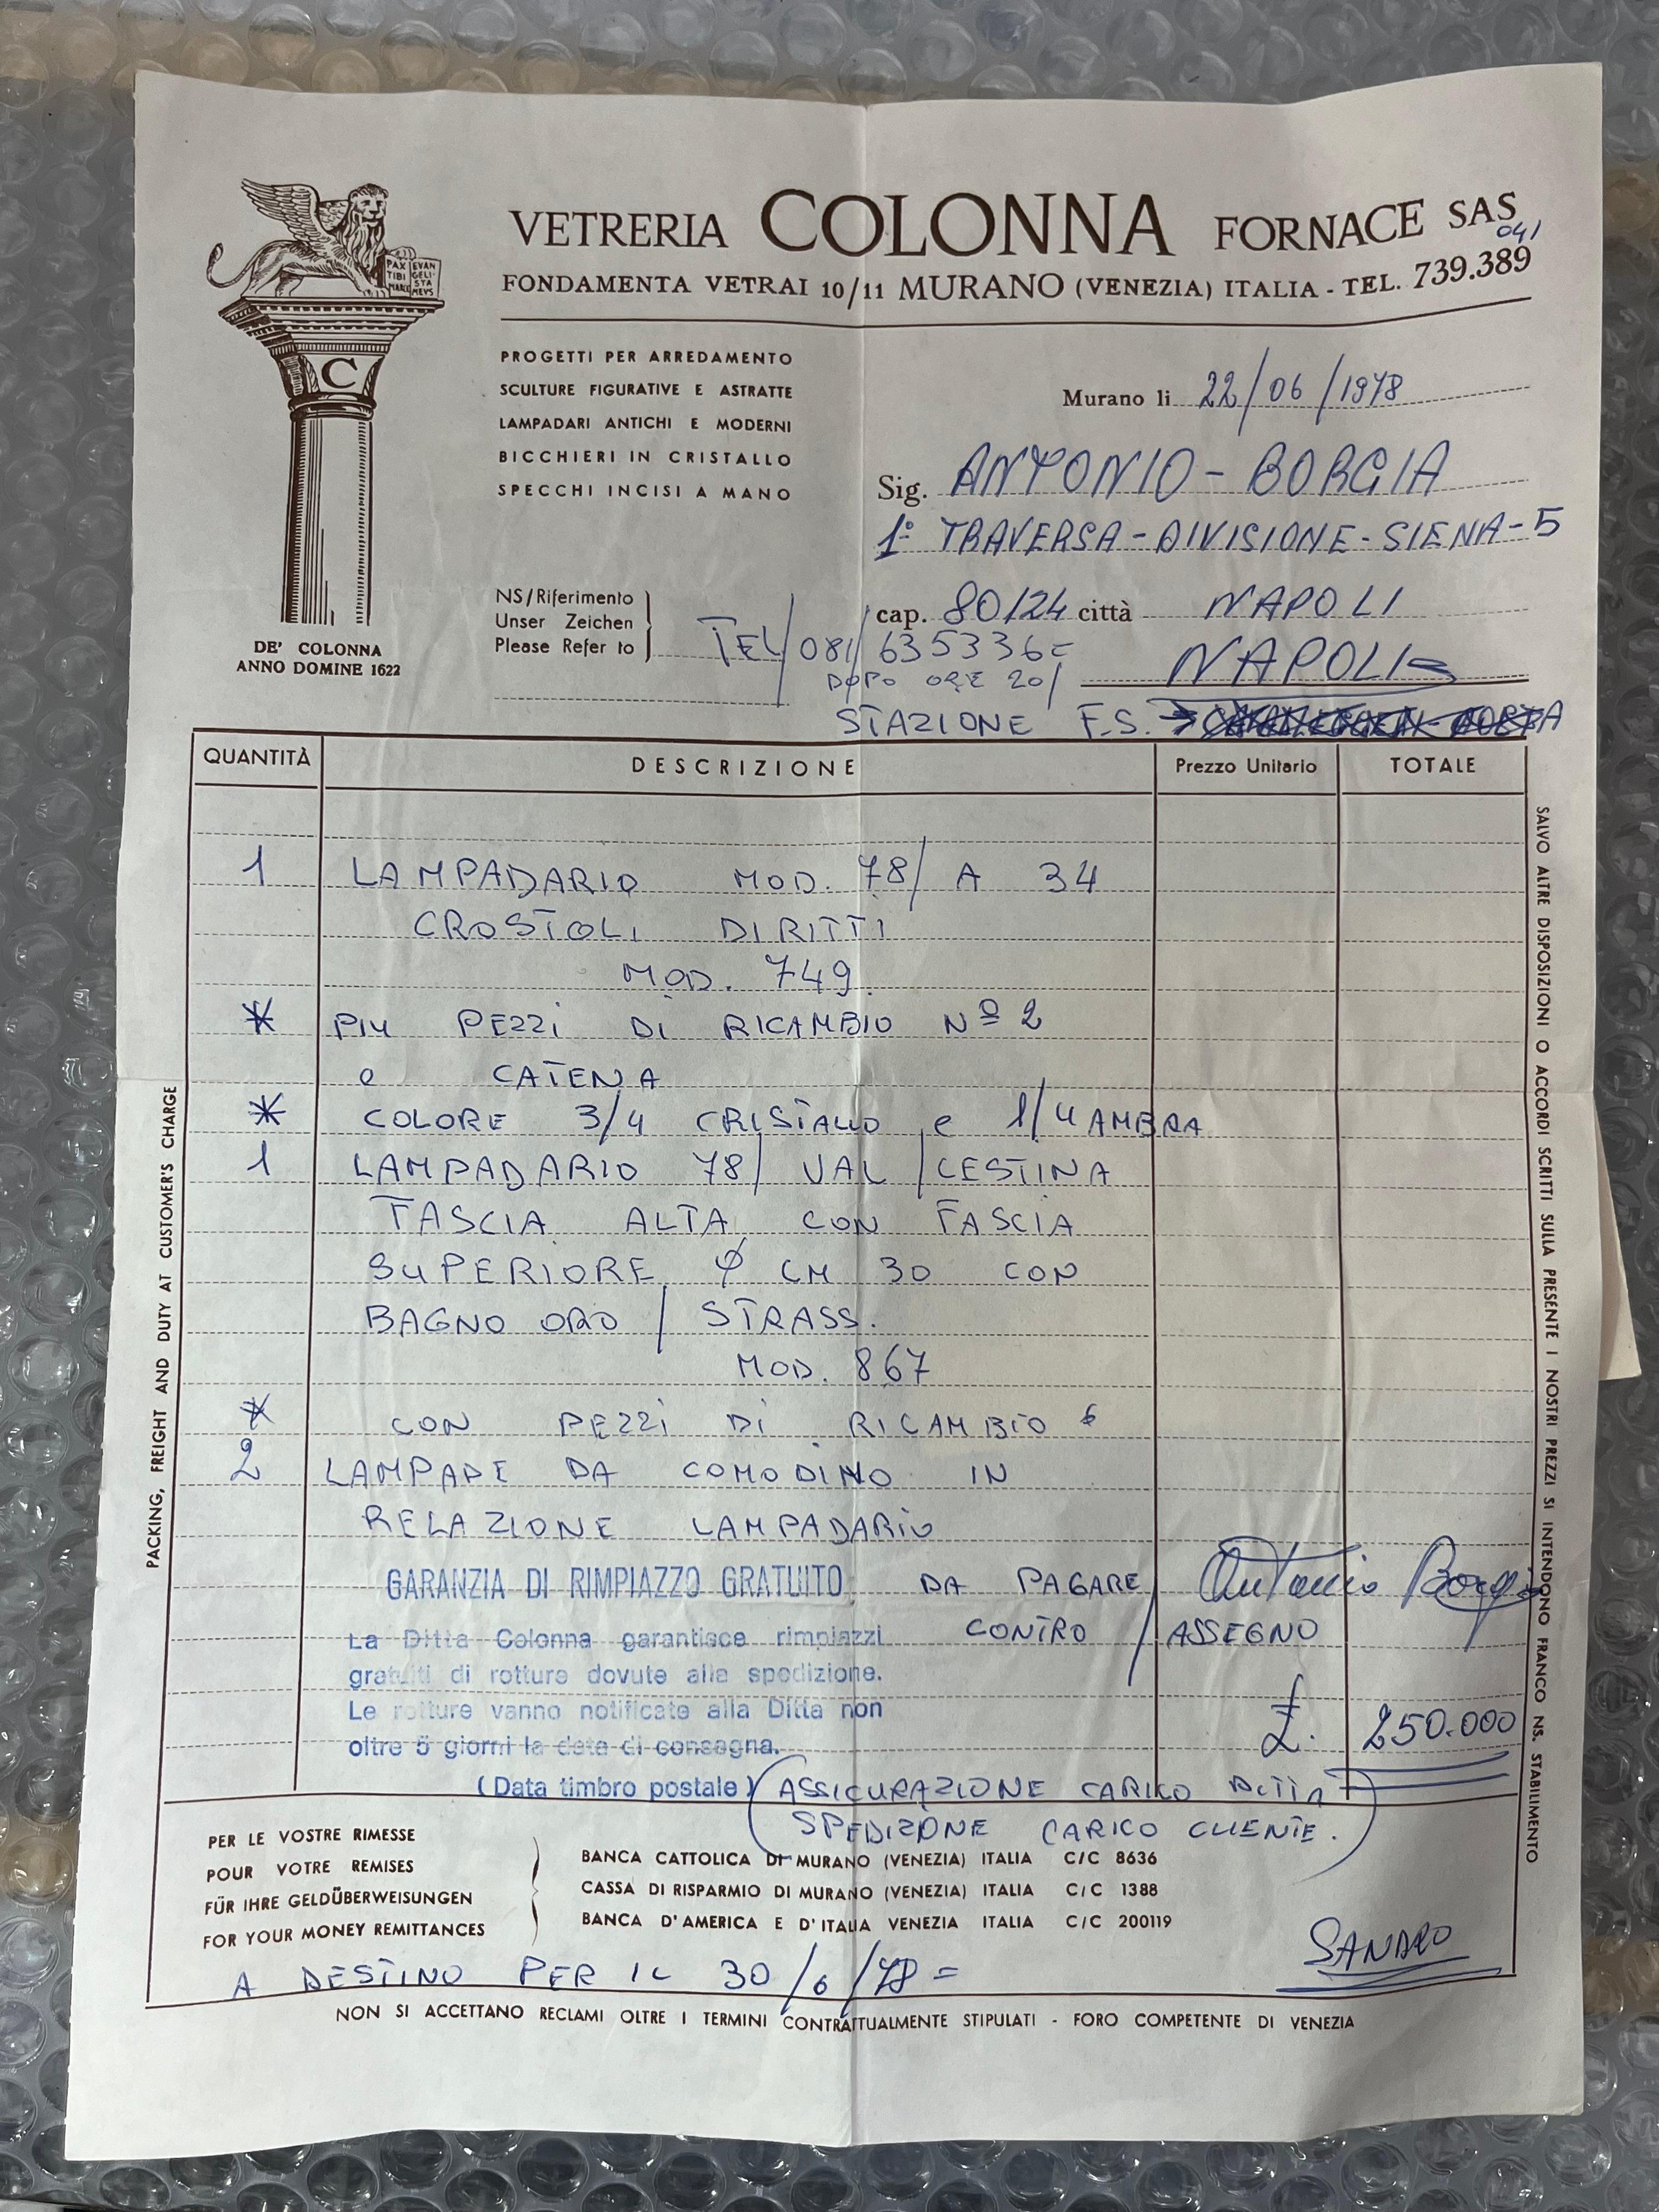 VETRERIA COLONNA FORNACE SAS
041
FONDAMENTA VETRAI 10/11 MURANO (VENEZIA) ITALIA - TEL. 739.389
PAX TIBI MARCE EVAN GELI STA MEVS
C
DE' COLONNA
ANNO DOMINE 1622
PROGETTI PER ARREDAMENTO
SCULTURE FIGURATIVE E ASTRATTE
LAMPADARI ANTICHI E MODERNI
BICCHIERI IN CRISTALLO
SPECCHI INCISI A MANO
Murano li 22/06/1978
Sig. ANTONIO - BORGIA
1° TRAVERSA - DIVISIONE - SIENA - 5
cap. 80124 città NAPOLI
NS/Riferimento
Unser Zeichen
Please Refer to
TEL/081/635336=
DOPO ORE 20/
NAPOLI=
STAZIONE F.S.
QUANTITÀ DESCRIZIONE Prezzo Unitario TOTALE
1 LAMPADARIO MOD. 78/ A 34
CROSTOLI DIRITTI
MOD. 749
* PIU PEZZI DI RICAMBIO Nº 2
e CATENA
* COLORE 3/4 CRISTALLO e 1/4 AMBRA
1 LAMPADARIO 78/ VAL/CESTINA
FASCIA ALTA CON FASCIA
SUPERIORE φ CM 30 CON
BAGNO ORO / STRASS.
MOD. 867
* CON PEZZI DI RICAMBIO 6
2 LAMPADE DA COMODINO IN
RELAZIONE LAMPADARIO
GARANZIA DI RIMPIAZZO GRATUITO DA PAGARE/ Antonio Borgia
CONTRO / ASSEGNO
La Ditta Colonna garantisce rimpiazzi
gratuiti di rotture dovute alla spedizione.
Le rotture vanno notificate alla Ditta non
oltre 5 giorni la data di consegna.
(Data timbro postale)
£. 250.000
(ASSICURAZIONE CARICO DITTA
SPEDIZIONE CARICO CLIENTE.)
PER LE VOSTRE RIMESSE
POUR VOTRE REMISES
FÜR IHRE GELDÜBERWEISUNGEN
FOR YOUR MONEY REMITTANCES
BANCA CATTOLICA DI MURANO (VENEZIA) ITALIA C/C 8636
CASSA DI RISPARMIO DI MURANO (VENEZIA) ITALIA C/C 1388
BANCA D'AMERICA E D'ITALIA VENEZIA ITALIA C/C 200119
SANDRO
A DESTINO PER IL 30/6/78=
NON SI ACCETTANO RECLAMI OLTRE I TERMINI CONTRATTUALMENTE STIPULATI - FORO COMPETENTE DI VENEZIA
PACKING, FREIGHT AND DUTY AT CUSTOMER'S CHARGE
SALVO ALTRE DISPOSIZIONI O ACCORDI SCRITTI SULLA PRESENTE I NOSTRI PREZZI SI INTENDONO FRANCO NS. STABILIMENTO